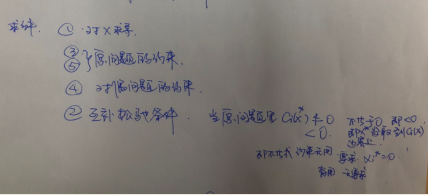 条件: ① 对X求导.
③
⑤ } 原问题的约束.
④ 对偶问题的约束.
② 互补松弛条件. 当原问题里 Ci(x*) ≠ 0 不等于0, 即<0
< 0.
边界上.
即不等式约束无用 要求 αi* = 0
有用 无要求